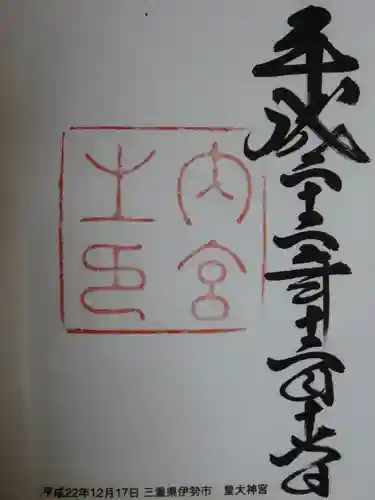 平成二十二年十二月十七日
内宮
之印
平成22年12月17日 三重県伊勢市　皇大神宮